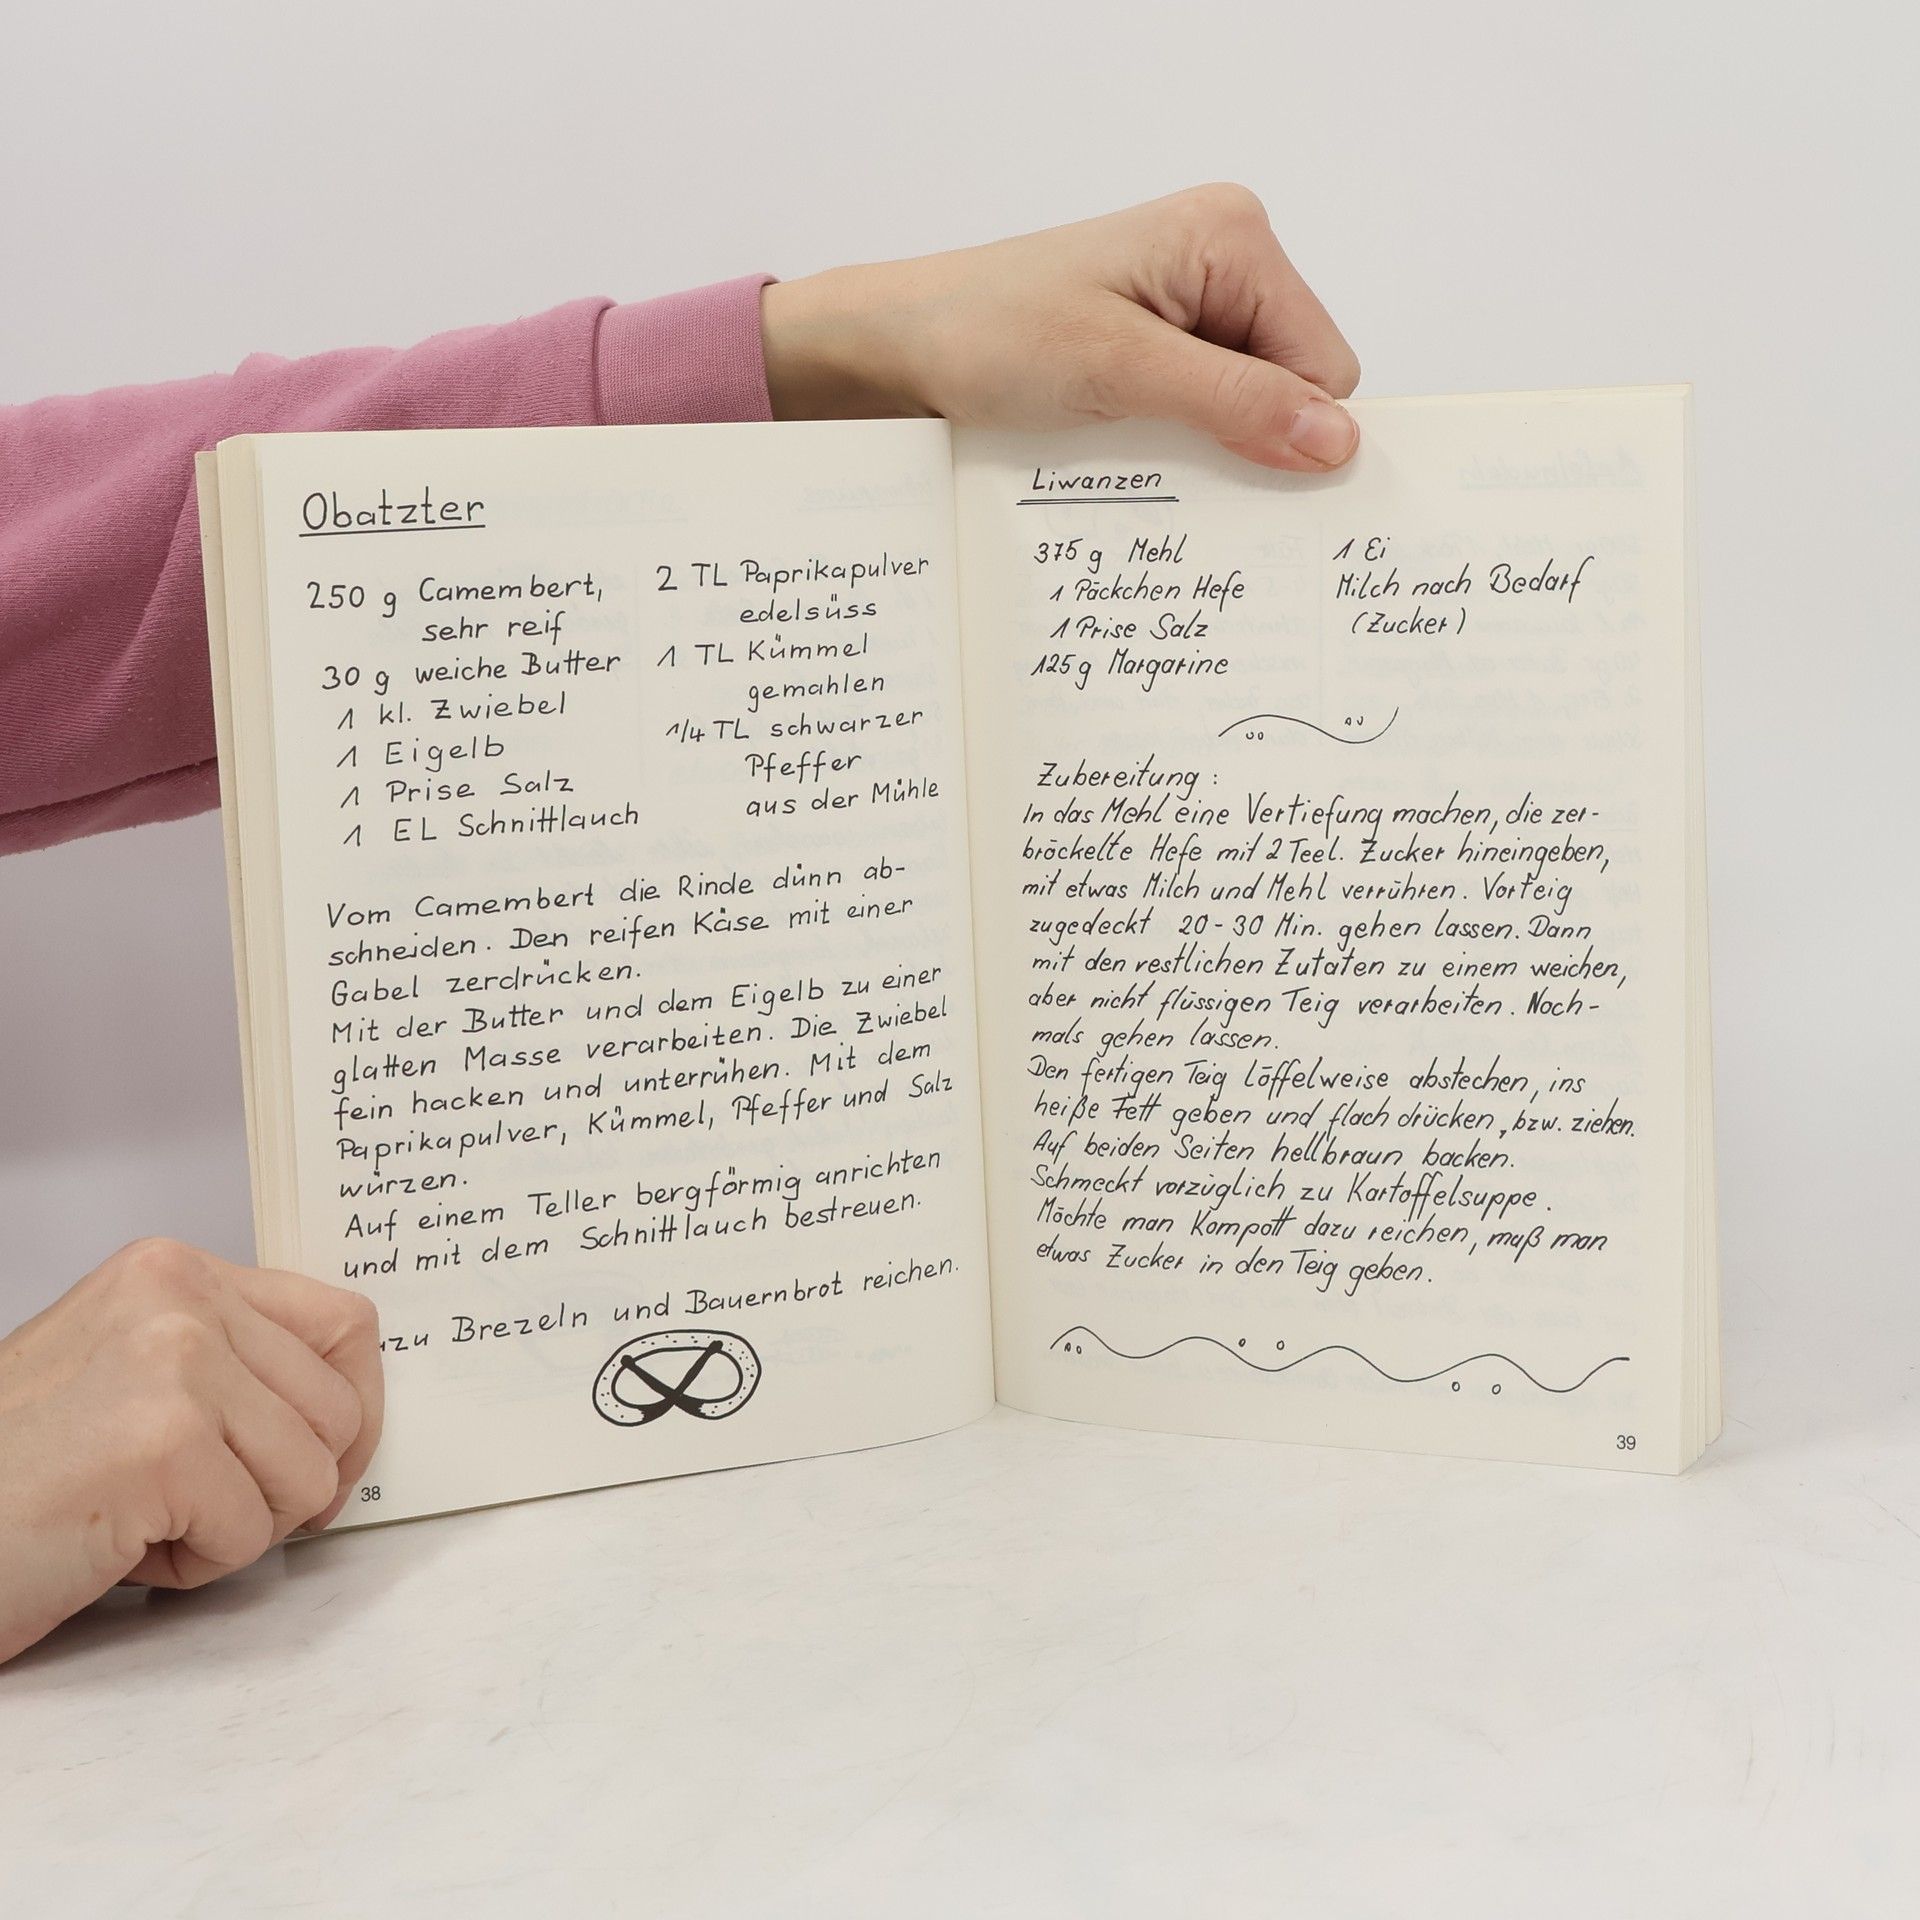 Obatzter
250 g Camembert,
sehr reif
30 g weiche Butter
1 kl. Zwiebel
1 Eigelb
1 Prise Salz
1 EL Schnittlauch
2 TL Paprikapulver
edelsüss
1 TL Kümmel
gemahlen
1/4 TL schwarzer
Pfeffer
aus der Mühle
Vom Camembert die Rinde dünn ab-
schneiden. Den reifen Käse mit einer
Gabel zerdrücken.
Mit der Butter und dem Eigelb zu einer
glatten Masse verarbeiten. Die Zwiebel
fein hacken und unterrühen. Mit dem
Paprikapulver, Kümmel, Pfeffer und Salz
würzen.
Auf einem Teller bergförmig anrichten
und mit dem Schnittlauch bestreuen.
Brezeln und Bauernbrot reichen.
38
Liwanzen
375 g Mehl
1 Päckchen Hefe
1 Prise Salz
125 g Margarine
1 Ei
Milch nach Bedarf
(Zucker)
Zubereitung:
In das Mehl eine Vertiefung machen, die zer-
bröckelte Hefe mit 2 Teel. Zucker hineingeben,
mit etwas Milch und Mehl verrühren. Vorteig
zugedeckt 20-30 Min. gehen lassen. Dann
mit den restlichen Zutaten zu einem weichen,
aber nicht flüssigen Teig verarbeiten. Noch-
mals gehen lassen.
Den fertigen Teig löffelweise abstechen, ins
heiße Fett geben und flach drücken, bzw. ziehen.
Auf beiden Seiten hellbraun backen.
Schmeckt vorzüglich zu Kartoffelsuppe.
Möchte man Kompott dazu reichen, muß man
etwas Zucker in den Teig geben.
39